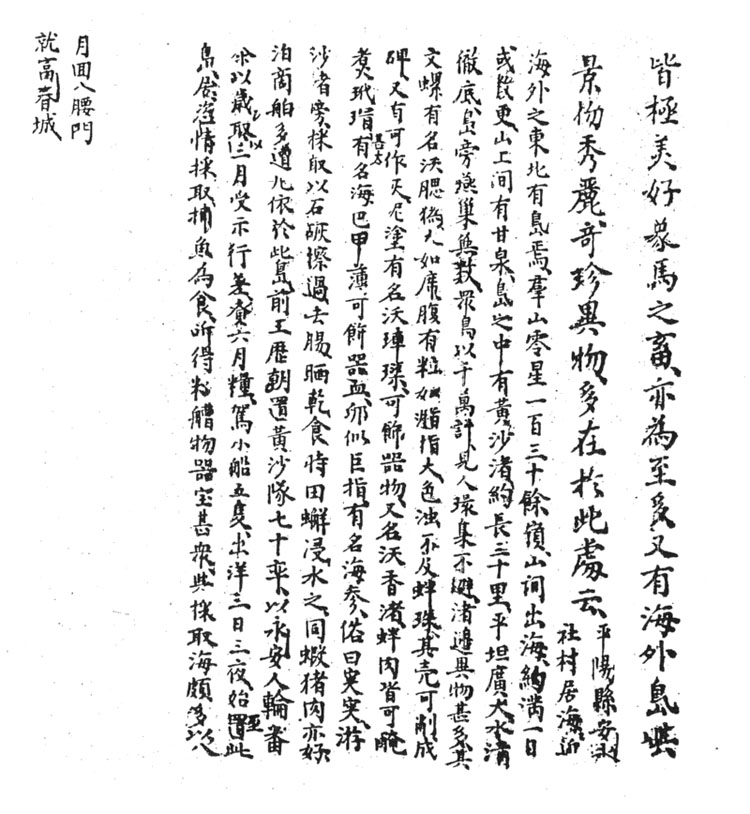 皆極美好象馬之畜亦為至多又有海外島㠊
景物秀麗奇珍異物多在於此處云平陽縣安永
社村居海近
海外之東北有島焉群山零星一百三十餘嶺山間出海約満一日
或数更山上间有甘泉島之中有黄沙渚約長三十里平坦廣大水清
徹底島旁燕巢無数眾鳥以千萬計見人環集不避渚邊異物甚多其
文螺有名沃腮大如蓆腹有粒如指大色浊不及蚌珠其壳可削成
碑又有可作灰泥塗有名沃硨磲可飾器物又名沃香渚蚌肉皆可醃
煮玳瑁甚大有名海巴甲薄可飾器皿卵似巨指有名海参俗曰突突游
沙渚旁採取以石灰擦過去腸晒乾食時田蠏浸水之同蝦猪肉亦好
泊商舶多遭凡依於此島前王歷朝置黄沙隊七十率以永安人輪番
採以歳取三月受示行差賫六月糧駕小船五隻出洋三日三夜始至此
島居恣情採取捕魚為食所得粆艚物器宝甚衆其採取海頗多以八
月回入腰門
就富春城